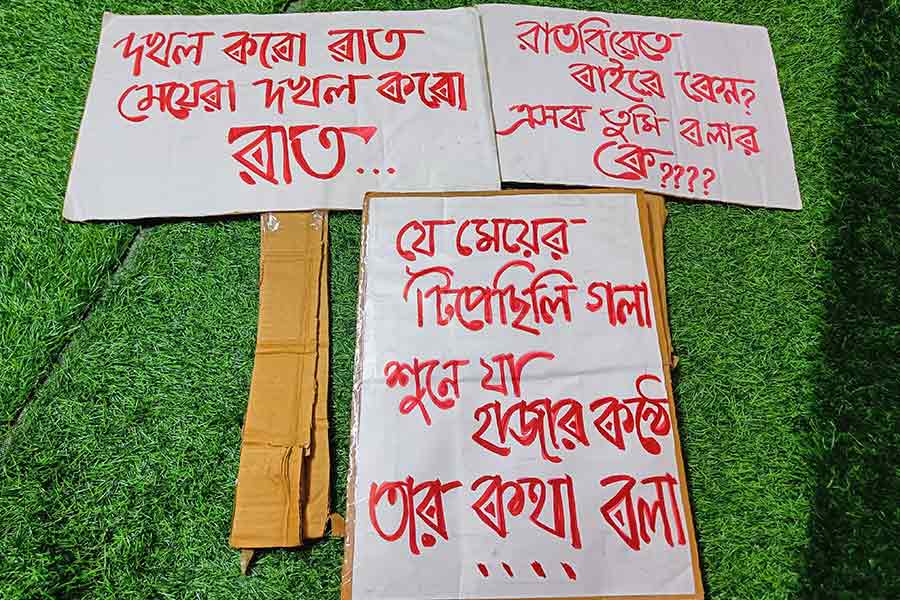 দখল করো রাত
মেয়েরা দখল করো
রাত...
রাতবিরেতে
বাইরে কেন?
এসব তুমি বলার
কে????
যে মেয়ের
টিপেছিলি গলা
শুনে যা
হাজার কন্ঠে
তার কথা বলা
....